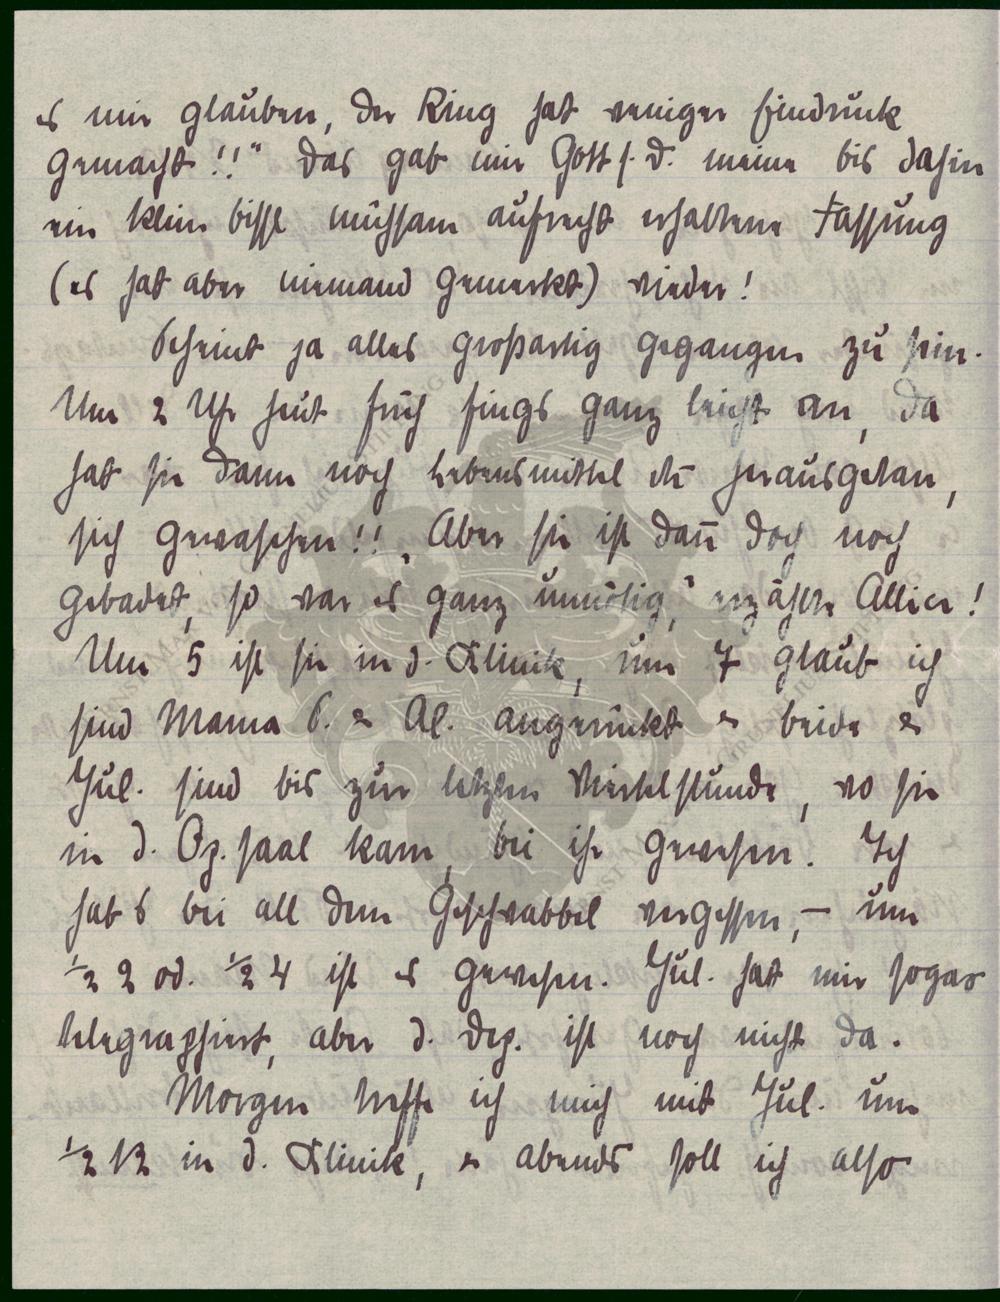 es mir glauben, der Ring hat weniger Eindruck
gemacht!!" Das gab mir Gott s. D. meine bis dahin
ein klein bissl mühsam aufrecht erhaltene Fassung
(es hat aber niemand gemerkt) wieder!
Scheint ja alles großartig gegangen zu sein.
Um 2 Uhr heut früh fings ganz leicht an, da
hat sie dann noch Lebensmittel etc herausgetan,
sich gewaschen!! „Aber sie ist dann doch noch
gebadet, so war es ganz unnötig," erzählte Allice!
Um 5 ist sie in d. Klinik, um 7 glaub ich
sind Mama S. & Al. angerückt & beide &
Jul. sind bis zur letzten Viertelstunde, wo sie
in d. Op. saal kam, bei ihr gewesen. Ich
hab's bei all dem Geschwabbel vergessen, – um
½ 2 od. ½ 4 ist es gewesen. Jul. hat mir sogar
telegraphiert, aber d. Dep. ist noch nicht da.
Morgen treffe ich mich mit Jul. um
½ 12 in d. Klinik, & abends soll ich also